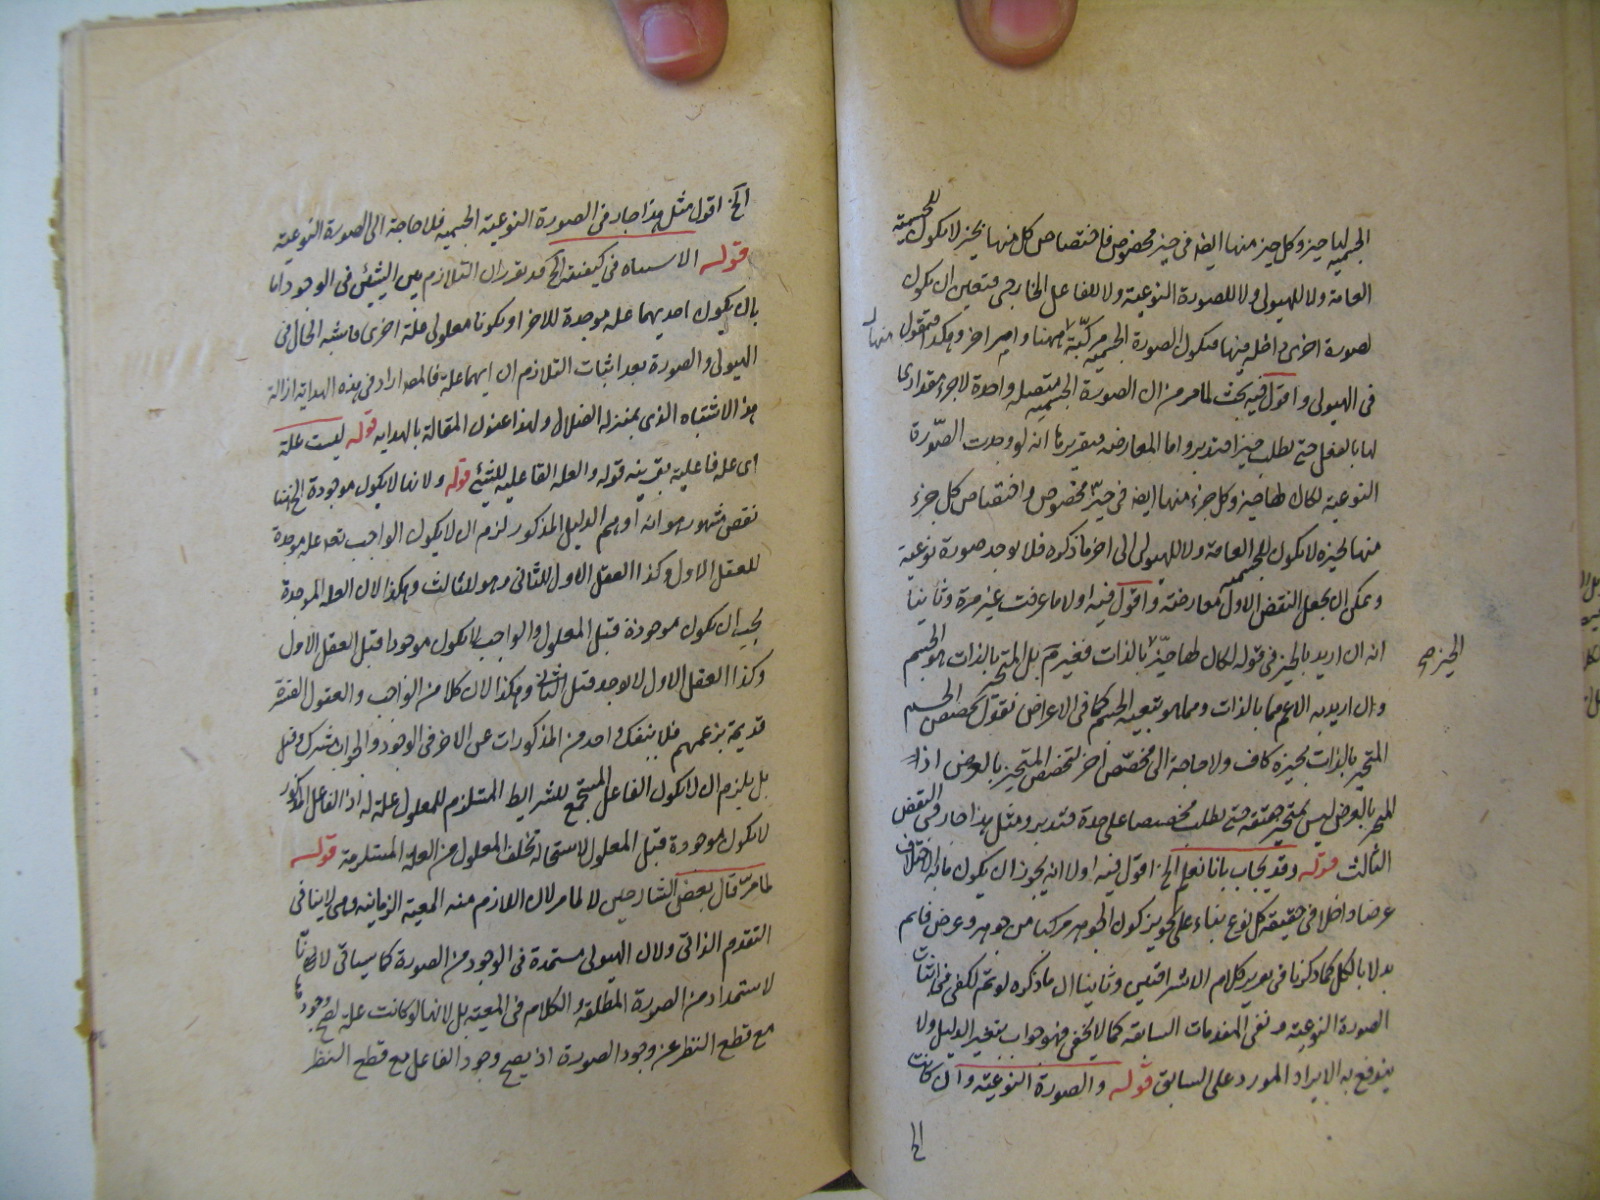 الجسمية لها حيز وكل حيز منها ايضا في حيز مخصوص فاختصاص كل منها بحيز لا يكون للجسمية
العامة ولا للهيولى ولا للصورة النوعية ولا للفاعل الخارجي فتعين ان يكون
لصورة اخرى داخل فيها فتكون الصورة الجسمية مركبة منها ومن امر اخر وهكذا فنقول
في الهيولى واقول فيه بحث لما مر من ان الصورة الجسمية متصلة واحدة لا جزء مقداري
لها بالفعل حتى يطلب حيزا فتدبر واما المعارضة فتقريرها انه لو وجدت الصورة
النوعية لكان لها حيز وكل جزء منها ايضا في حيز مخصوص واختصاص كل جزء
منها بحيزه لا يكون للجسمية العامة ولا للهيولى الى اخر ما ذكره فلا يوجد صورة نوعية
ويمكن ان يجعل النقض الاول معارضة واقول فيه اولا ما عرفت غير مرة وثانيا
انه ان اريد بالحيز في قوله لكان لها حيز بالذات فغير مم بل المتحيز بالذات هو الجسم
وان اريد به الاعم مما بالذات ومما هو بتبعية الجسم كما في الاعراض نقول تخصيص الجسم
المتحيز بالذات بحيزه كاف ولا حاجة الى مخصص اخر لتخصص المتحيز بالعرض اذ
المتحيز بالعرض ليس بمتحيز حقيقة حتى يطلب مخصصا على حدة فتدبر ومثل هذا جار في النقض
الثالث قوله وقد يجاب بانا نعلم الخ اقول فيه اولا انه يجوز ان يكون ما به الاختلاف
عرضا داخلا في حقيقة كل نوع بناء على تجويز كون الجوهر مركبا من جوهر وعرض قائم
به لا بالكل كما ذكرنا في تقرير كلام الاشراقيين وثانيا ان ما ذكره لو تم لكفى في اثبات
الصورة النوعية ونفي المقدمات السابقة كما لا يخفى فهو جواب بتغيير الدليل ولا
يندفع به الايراد المورد على السابق قوله والصورة النوعية وان كانت
الخ
الحيز صح
الخ اقول مثل هذا جار في الصورة النوعية الجسمية فلا حاجة الى الصورة النوعية
قوله الاشتباه في كيفية الخ قد تقرر ان التلازم بين الشيئين في الوجود اما
بان يكون احديهما علة موجدة للاخر او يكونا معلولي علة اخرى فاشتبه الحال في
الهيولى والصورة بعد اثبات التلازم ان ايهما علة فالمصه اراد في هذه الهداية ازالة
هذا الاشتباه الذي بمنزلة الضلال ولهذا عنون المقالة بالهداية قوله ليست علة
اى علة فاعلية بقرينة قوله والعلة الفاعلية للشئ قوله ولانها لا يكون موجودة الخ هنا
نقض مشهور هو انه لو تم الدليل المذكور لزم ان لا يكون الواجب تعه علة موجدة
للعقل الاول وكذا العقل الاول للثاني وهو للثالث وهكذا لان العلة الموجدة
يجب ان يكون موجودة قبل المعلول والواجب لا يكون موجودا قبل العقل الاول
وكذا العقل الاول لا يوجد قبل الثاني وهكذا لان كلا من الواجب والعقول العشرة
قديمة بزعمهم فلا ينفك واحد من المذكورات عن الاخر في الوجود والجواب مشترك وقيل
بل يلزم ان لا يكون الفاعل المستجمع للشرايط المستلزم للمعلول علة له اذ الفاعل المذكور
لا يكون موجودة قبل المعلول لاستحالة تخلف المعلول من العلة المستلزمة قوله
لما مر قال بعض الشارحين لا لما مر لان اللازم منه المعية الزمانية وهي لا ينافي
التقدم الذاتي ولان الهيولى مستمدة في الوجود من الصورة كما سيأتي
لاستمداد من الصورة المطلقة والكلام في المعية بل لانها لو كانت علة لصح وجودها
مع قطع النظر عن وجود الصورة اذ يصح وجود الفاعل مع قطع النظر